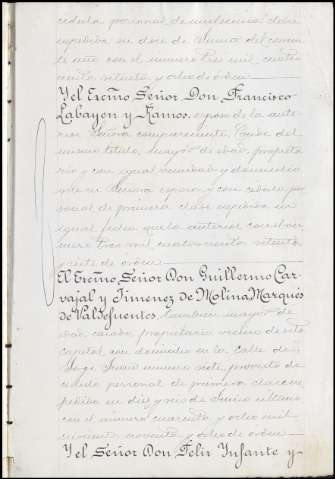 cédula personal de undécima clase
expedida en doce de Junio del corrien
te año con el numero tres mil cuatro
ciento setenta y ocho de órden
Y el Excmo. Señor Don Francisco
Labayen y Ramos, esposo de la ante
rior Señora compareciente, Conde del
mismo titulo, mayor de edad, propieta
rio y con igual vecindad y domicilio
que su Señora esposa y con cédula per
sonal de primera clase expedida en
igual fecha que la anterior con el nú
mero tres mil cuatrocientos setenta
y siete de órden
El Excmo. Señor Don Guillermo Car
vajal y Jimenez de Molina, Marqués
de Valdefuentes, tambien mayor de
edad, casado, propietario, vecino de esta
capital con domicilio en la calle de
Jorge Juan numero siete, provisto de
cédula personal de primera clase ex
pedida en diez y seis de Junio ultimo
con el numero cuarenta y ocho mil
noventa y ocho de órden
Y el Señor Don Felix Infante y